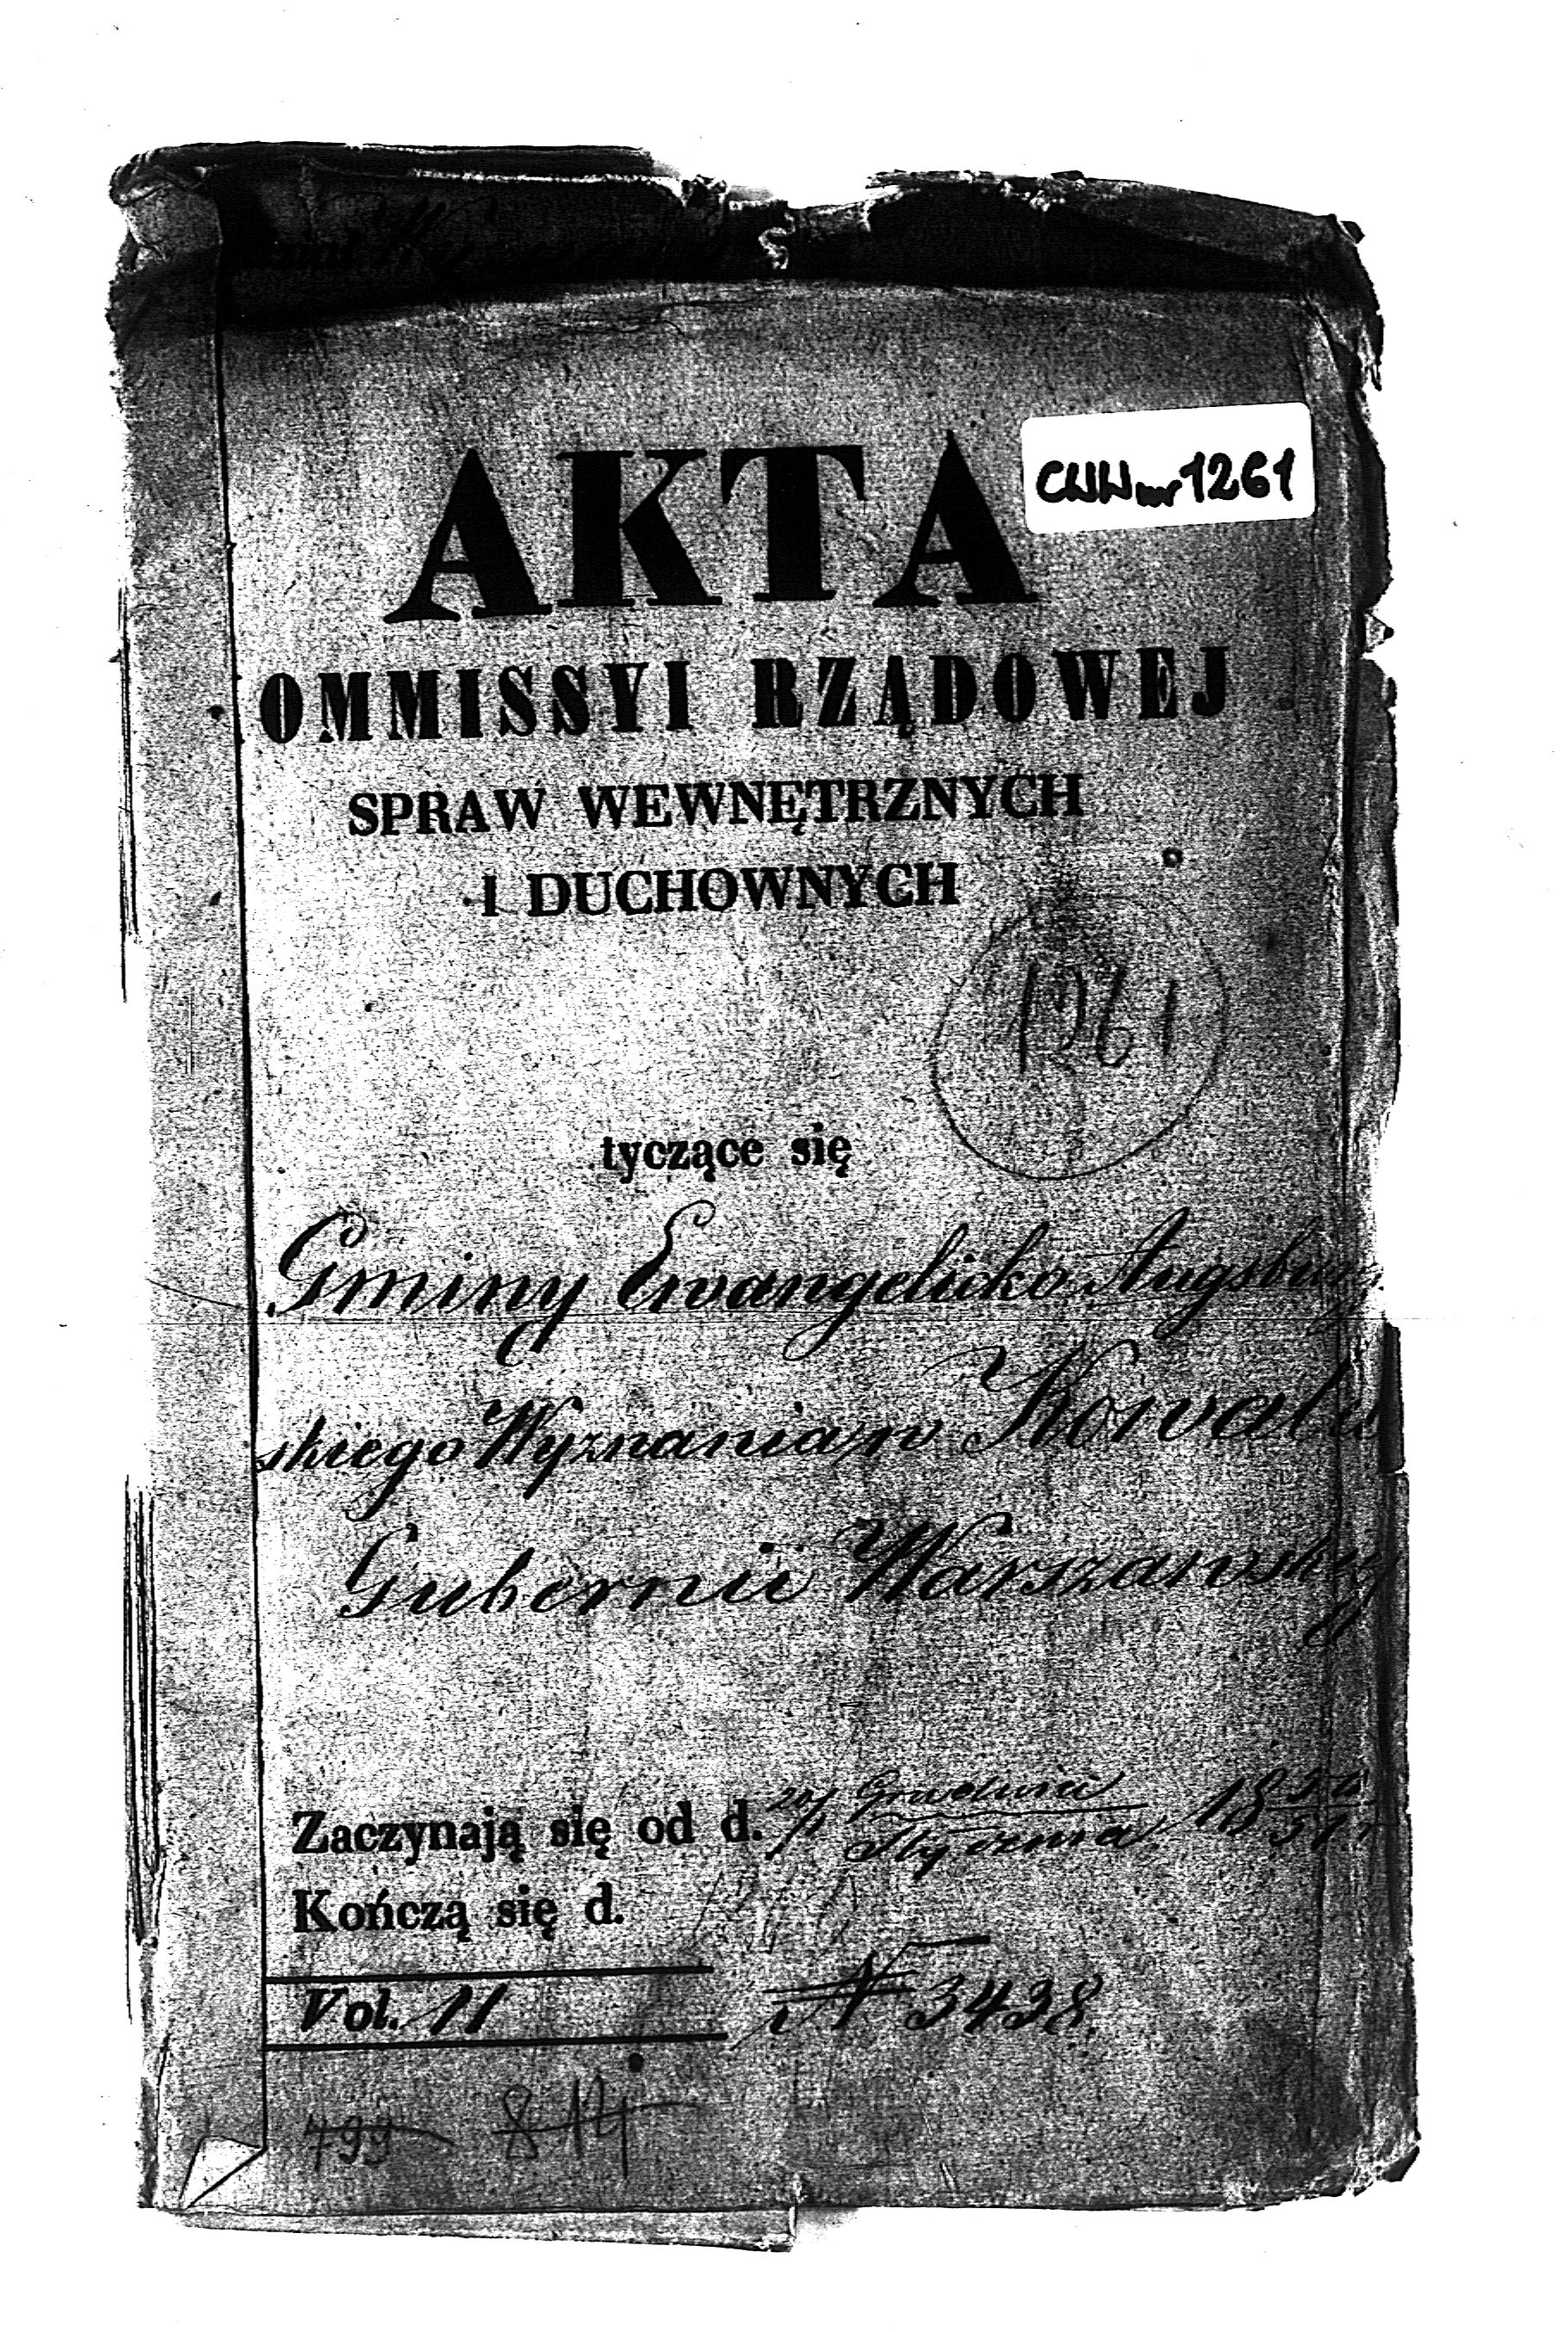 AKTA
CWW nr 1261
OMMISSYI RZĄDOWEJ
SPRAW WEWNĘTRZNYCH
I DUCHOWNYCH
1261
tyczące się
Gminy Ewangelicko Augsbur
skiego Wyznania w Kowalu
Gubernii Warszawskiej
Zaczynają się od d. 20/1 Grudnia Stycznia 18 50/51 r
Kończą się d.
Vol. II N 3438.
799 814